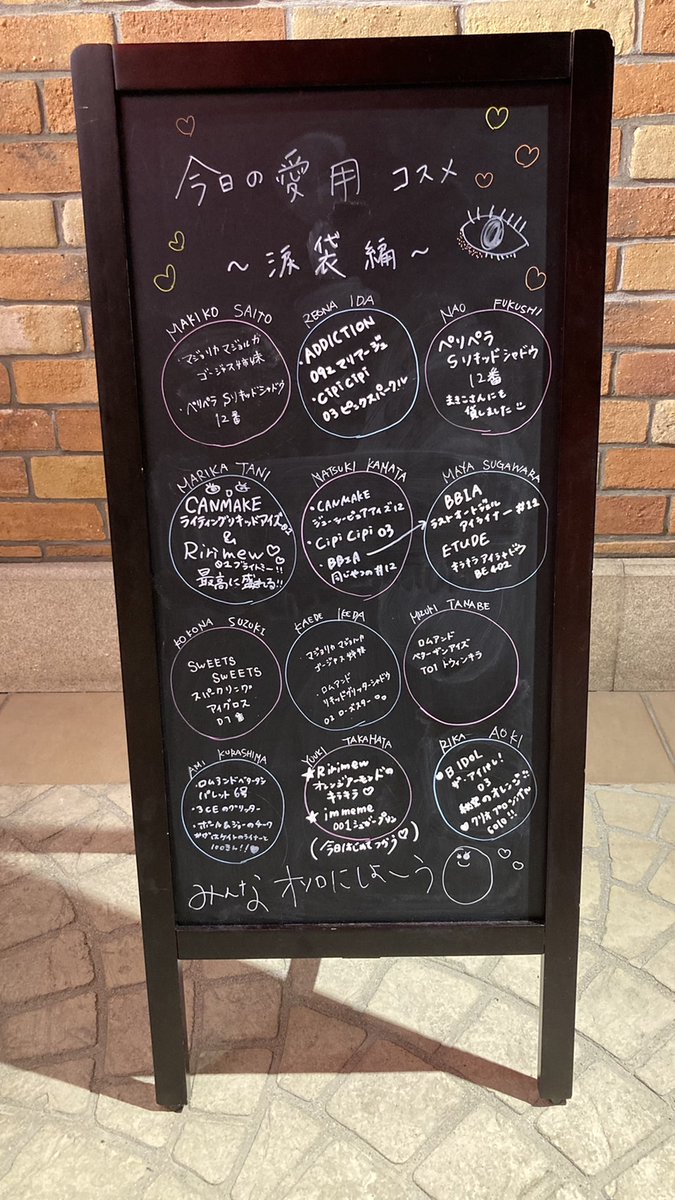 今日の愛用 コスメ
～涙袋編～
MAKIKO SAITO
・マジョリカ マジョルカ
ゴージャス姉妹
・ペリペラ Sリキッドシャドウ
12番
REONA IDA
・ADDICTION
092 マリアージュ
・Cipi Cipi
03 ピンクスパークル
NAO FUKUSHI
ペリペラ
Sリキッドシャドウ
12番
まきこさんにも
貸しました
MARIKA TANI
CANMAKE
ライティングリキッドアイズ02
&
Ririmew♡
02 プライトミー!!
最高に盛れる!!
NATSUKI KAMATA
・CANMAKE
ジューシーピュアアイズ12
・Cipi Cipi 03
・BBIA
同じやつの#12
MAYA SUGAWARA
BBIA
ラストオートジェル
アイライナー #12
ETUDE
キラキラ アイシャドウ
BE402
KOKONA SUZUKI
SWEETS
SWEETS
スパークリング
アイグロス
01番
KAEDE IKEDA
・マジョリカ マジョルカ
ゴージャス姉妹
・ロムアンド
リキッドグリッターシャドウ
02 ローズスター
MIZUKI TANABE
ロムアンド
ベターザンアイズ
T01 トウィンキラ
AMI KURASHIMA
・ロムアンドベターザン
パレット 6号
・3CEのグリッター
・ポール&ジョーのチーク
YUUKI TAKAHATA
★Ririmew
オレンジアーモンドの
キラキラ♡
★immeme
001 シュガープラン
(今日はじめてつかう♡)
RIKA AOKI
♥B IDOL
ザ・アイパレ!
03
秘密のオレンジ
♥クリオ プロシングル
G010!!
みんな オソロにしよ～う